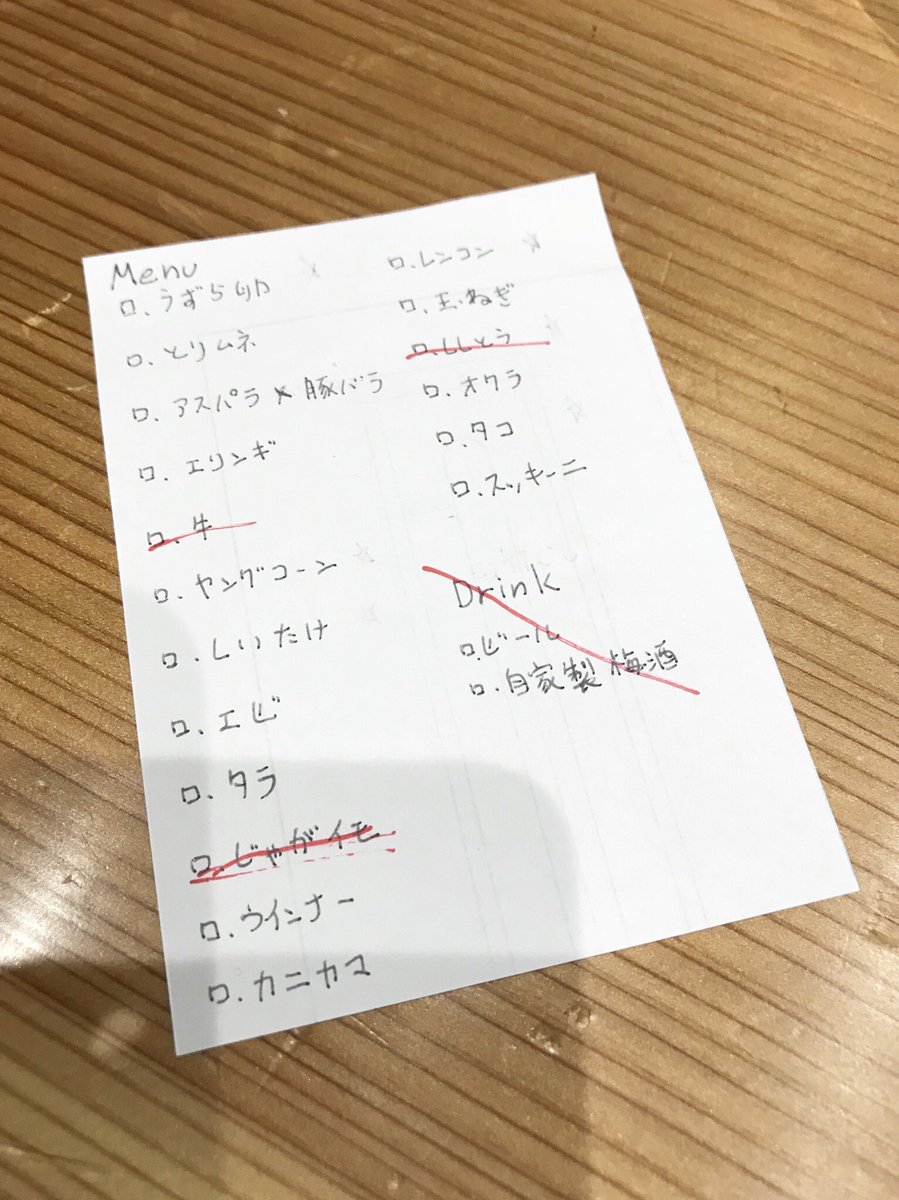 Menu
□.うずら卵
□.とりムネ
□.アスパラ×豚バラ
□.エリンギ
□.牛
□.ヤングコーン
□.しいたけ
□.エビ
□.タラ
□.じゃがイモ
□.ウインナー
□.カニカマ
□.レンコン
□.玉ねぎ
□.ししとう
□.オクラ
□.タコ
□.ズッキーニ
Drink
□.ビール
□.自家製梅酒